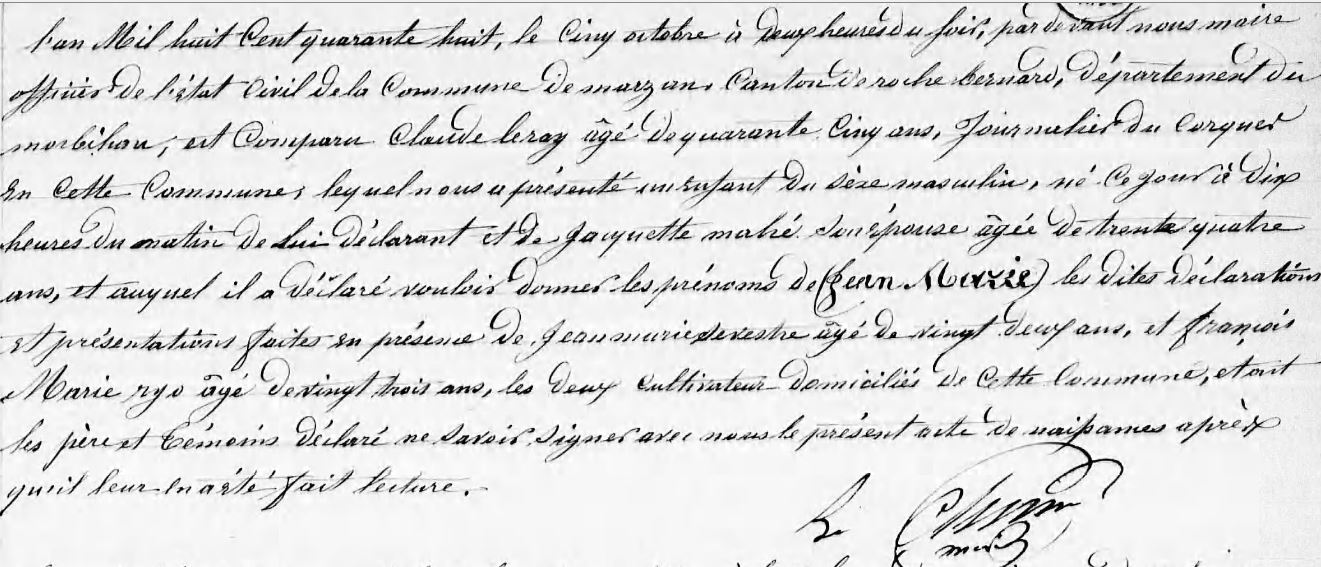 l'an Mil huit Cent quarante huit, le Cinq octobre à deux heures du soir, par devant nous maire
officier de l'état Civil de la Commune de marzan, Canton de roche bernard, département du
morbihan, est Comparu Claude leray âgé de quarante Cinq ans, Journalier du Corquer
En Cette Commune, lequel nous a présenté un Enfant du Sèxe masculin, né Ce jour à dix
heures du matin de Lui déclarant et de Jacquette mahé Son épouse âgée de trente quatre
ans, et auquel il a déclaré vouloir donner les prénoms de (Jean Marie) les dites déclarations
Et présentations faites En présence de Jean marie devestre âgé de vingt deux ans, et françois
Marie ryo âgé de vingt trois ans, les deux Cultivateur domiciliés de Cette Commune, et ont
les père et témoins déclaré ne Savoir Signer avec nous le présent acte de naissances après
qu'il leur En a été fait lecture.
Le
maire